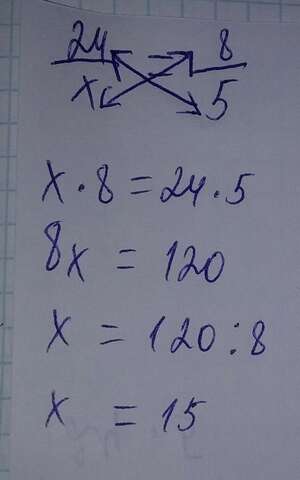 24/x = 8/5
x · 8 = 24 · 5
8x = 120
x = 120 : 8
x = 15